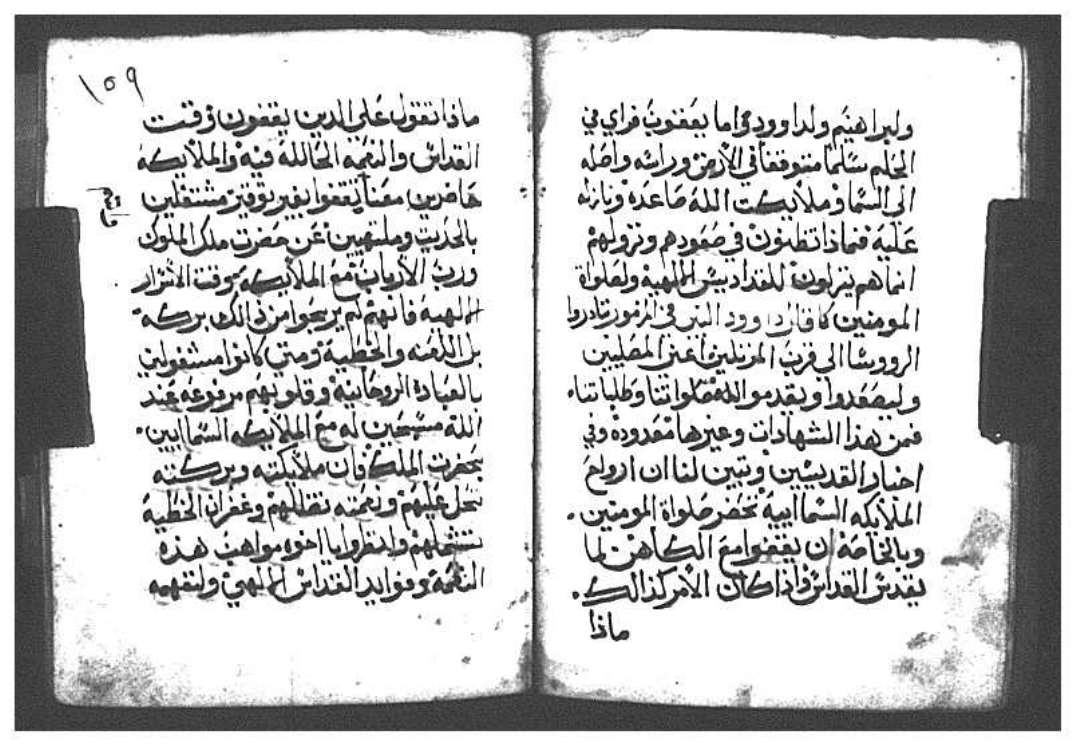 ولابراهيم ولداوود واما يعقوب فراي في
الحلم سلما متوقفا في الارض وراسه واصله
الى السما وملايكت الله صاعده ونازله
عليه فماذا تظنون في صعودهم ونزولهم
انما هم ينزلون للقداديس الالهيه ولصلواة
المومنين كما قال داوود النبي في المزمور تبادروا
الروسا الى قرب المرتلين اعني المصليين
وليصعدوا ويقدموا لله صلواتنا وطلباتنا
فمن هذا الشهادات وغيرها معدوده وفي
اخبار القديسين وتبين لنا ان ارواح
الملايكه السماايية تحضر صلواة المومنين
وبالخاصة ان يقفوا مع الكاهن لما
يقدس القداس واذا كان الامر كذالك
ماذا
١٥٩
ماذا تقول على الدين يقفون وقت
القداس والنعمه الحالله فيه والملايكه
حاضرين معنا يقفوا بغير توقير مشتغلين
بالحديث وملتهيين عن حضرت ملك الملوك
ورب الارباب مع الملايكه بوقت الاسرار
الالهيه فانهم لم يربحوا من ذالك بركه
بل اللعنه والخطية ومتى كانوا مشتغولين
بالعبادة الروحانية وقلوبهم مرفوعه عند
الله مسبحين له مع الملايكه السماايين
بحضرت الملك فان ملايكته وبركته
تحل عليهم ونعمته تظللهم وغفران الخطية
تشملهم وانظروا يا اخوه مواهب هذه
النعمة وفوايد القداس الالهي ولنفهمه